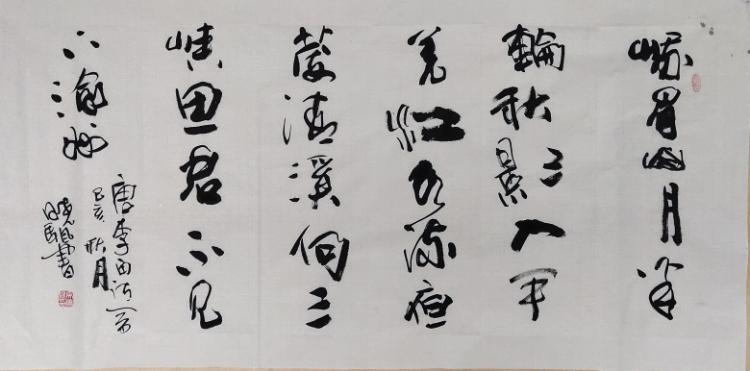 峨眉山月半
輪秋影入平
羌江水流夜
發清溪向三
峡思君不见
下渝州
唐李白詩一首
己亥秋月
曉書